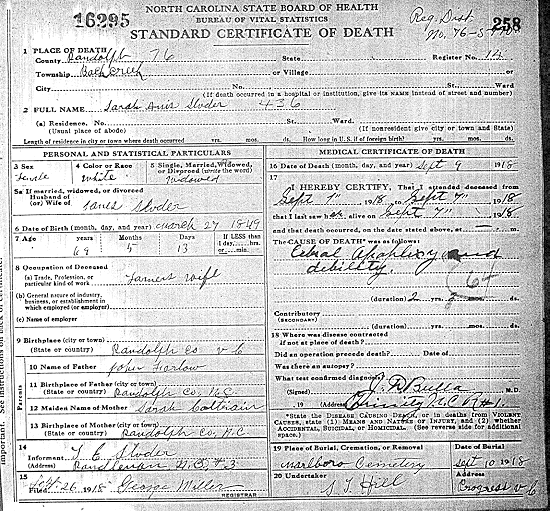 NORTH CAROLINA STATE BOARD OF HEALTH
BUREAU OF VITAL STATISTICS
STANDARD CERTIFICATE OF DEATH
16295
Reg. Dist.
No. 76-5
258
1 PLACE OF DEATH
County Randolph 76 State Register No. 14
Township Back Creek or Village or
City No. St. Ward
(If death occurred in a hospital or institution, give its NAME instead of street and number)
2 FULL NAME Sarah Ann Sluder 436
(a) Residence, No. St. Ward.
(Usual place of abode) (If nonresident give city or town and State)
Length of residence in city or town where death occurred yrs. mos. ds. How long in U.S. if of foreign birth? yrs. mos. ds.
PERSONAL AND STATISTICAL PARTICULARS
3 Sex 4 Color or Race 5 Single, Married, Widowed, or Divorced (write the word)
Female White Widowed
5a If married, widowed, or divorced
Husband of
(or) Wife of James Sluder
6 Date of Birth (month, day, and year) March 27 1849
7 Age years Months Days If LESS than
1 day, hrs.
or min.
69 5 13
8 Occupation of Deceased
(a) Trade, Profession, or
particular kind of work Farmers wife
(b) General nature of industry,
business, or establishment in
which employed (or employer)
(c) Name of employer
9 Birthplace (city or town)
(State or country) Randolph Co N C
Parents
10 Name of Father John Farlow
11 Birthplace of Father (city or town)
(State or country) Randolph Co, N.C.
12 Maiden Name of Mother Sarah Coltrain
13 Birthplace of Mother (city or town)
(State or country) Randolph Co, N.C.
14
Informant T C Sluder
(Address) Randleman N.C. #3
15
Filed Sept 26 1918 George Miller
REGISTRAR
MEDICAL CERTIFICATE OF DEATH
16 Date of Death (month, day, and year) Sept 9 1918
17
I HEREBY CERTIFY, That I attended deceased from
Sept 1" 1918 to Sept 7" 1918
that I last saw her alive on Sept 7" 1918
and that death occurred, on the date stated above, at m.
The CAUSE OF DEATH* was as follows:
Apoplexy and
debility
64
(duration) 2 yrs. mos. ds.
Contributory
(SECONDARY)
(duration) yrs. mos. ds.
18 Where was disease contracted
if not at place of death?
Did an operation precede death? Date of
Was there an autopsy?
What test confirmed diagnosis?
(Signed) J. D. Bulla M.D.
19 (Address) Trinity N.C. R#1.
*State the DISEASE CAUSING DEATH, or in deaths from VIOLENT
CAUSES, state (1) MEANS AND NATURE OF INJURY, and (2) whether
ACCIDENTAL, SUICIDAL, or HOMICIDAL. (See reverse side for additional
space.)
19 Place of Burial, Cremation, or Removal Date of Burial
Marlboro Cemetery Sept 10 1918
20 Undertaker Address
S. T. Hill Progress N C
important. See instructions on back of certificate.